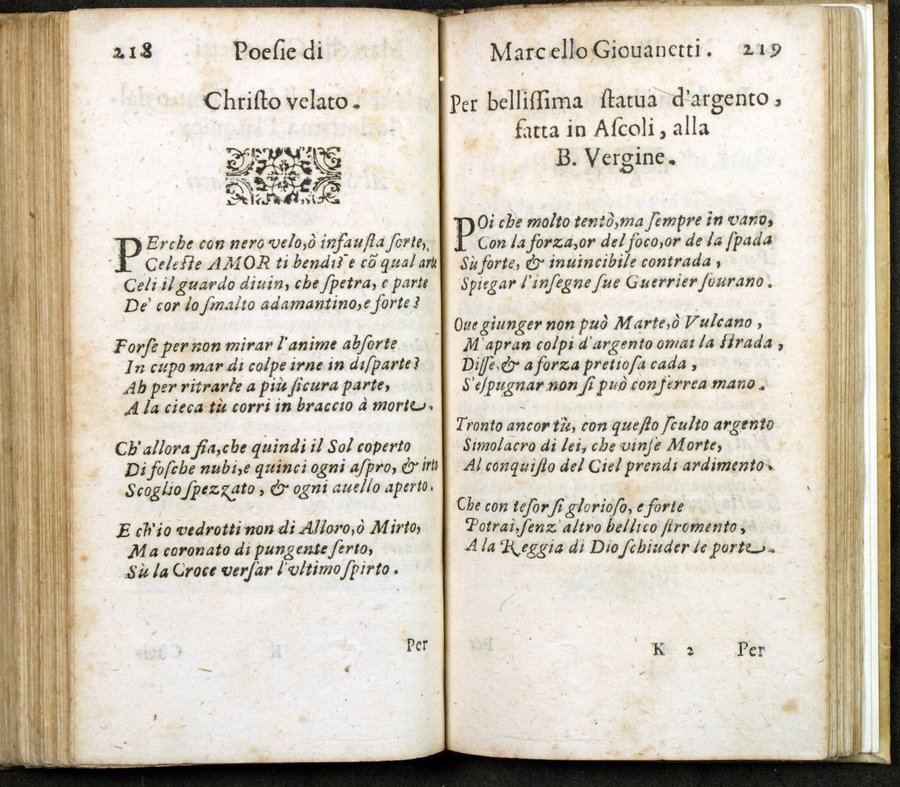 218 Poeſie di
Chriſto velato.
PErche con nero velo,ò infauſta ſorte,
Celeſte AMOR ti bendi? e cō qual arte
Celi il guardo diuin, che ſpetra, e parte
De' cor lo ſmalto adamantino,e forte?
Forſe per non mirar l'anime abſorte
In cupo mar di colpe irne in diſparte?
Ah per ritrarle a più ſicura parte,
A la cieca tù corri in braccio à morte.
Ch'allora fia,che quindi il Sol coperto
Di foſche nubi,e quinci ogni aſpro, & irto
Scoglio ſpezzato, & ogni auello aperto.
E ch'io vedrotti non di Alloro,ò Mirto,
Ma coronato di pungente ſerto,
Sù la Croce verſar l'vltimo ſpirto.
Per
Marcello Giouanetti. 219
Per belliſſima ſtatua d'argento,
fatta in Aſcoli, alla
B. Vergine.
POi che molto tentò,ma ſempre in vano,
Con la forza,or del foco,or de la ſpada
Sù forte, & inuincibile contrada,
Spiegar l'inſegne ſue Guerrier ſourano.
Oue giunger non può Marte,ò Vulcano,
M'apran colpi d'argento omai la ſtrada,
Diſſe,& a forza pretioſa cada,
S'eſpugnar non ſi può con ferrea mano.
Tronto ancor tù, con queſto ſculto argento
Simolacro di lei, che vinſe Morte,
Al conquiſto del Ciel prendi ardimento.
Che con teſor ſi glorioſo, e forte
Potrai,ſenz'altro bellico ſtromento,
A la Reggia di Dio ſchiuder le porte.
K 2 Per